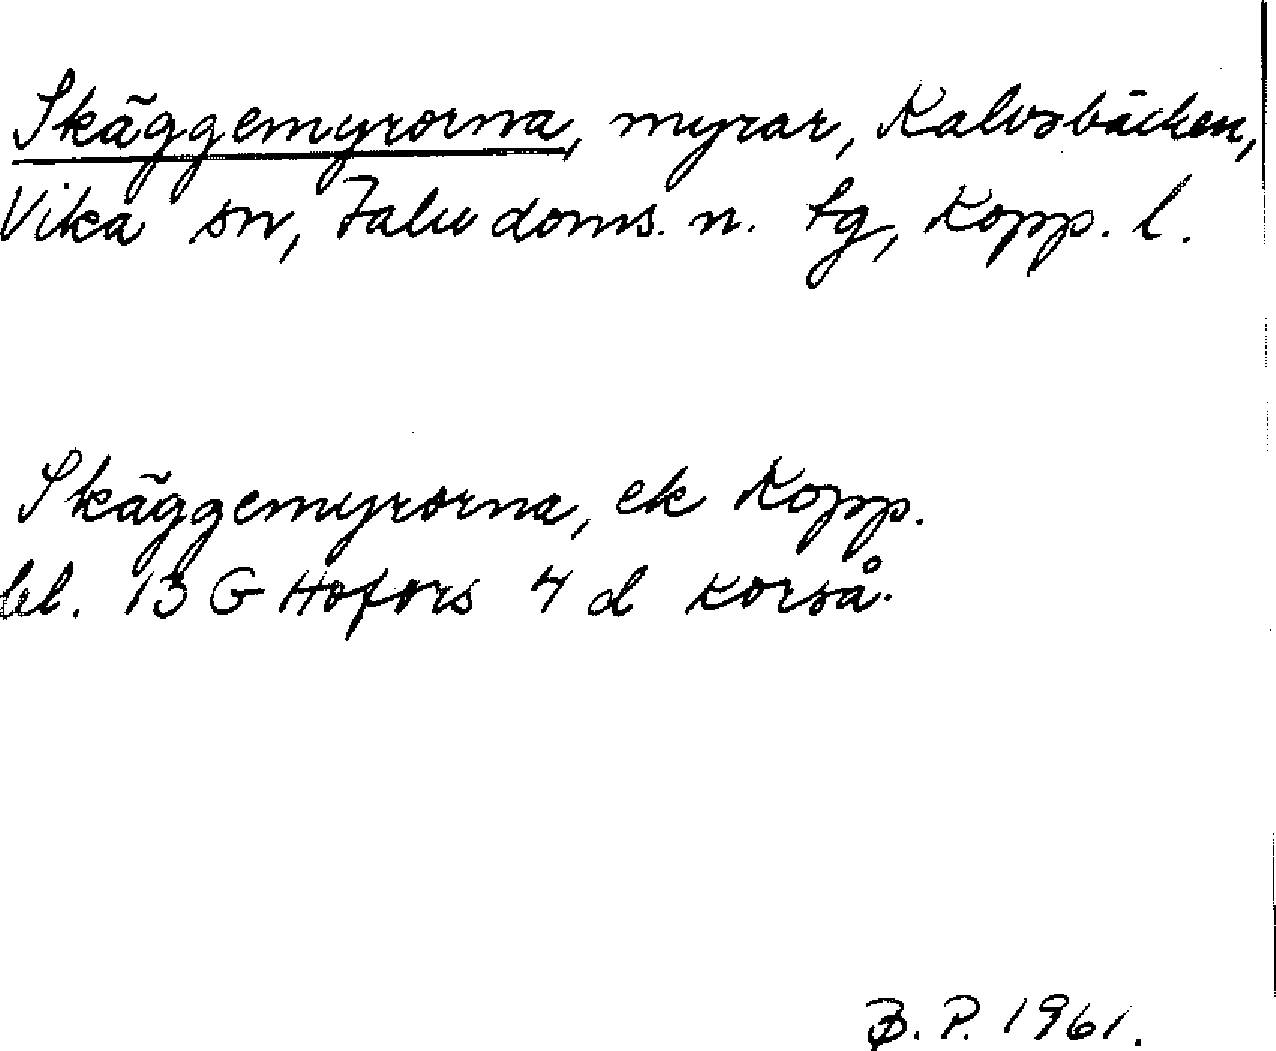 Skäggemyrorna, myrar, Kalvsbäcken,
Vika sn, Falu doms. n. tg, Kopp. l.
Skäggemyrorna, ek Kopp.
bl. 13 G Hofors 4 d Korså.
B. P. 1961.